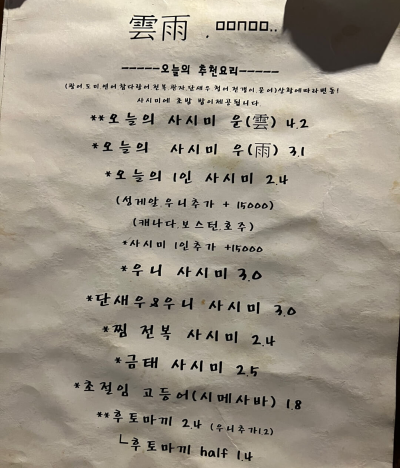 雲雨, ㅁㅁㄇㅁㅁ..
-----오늘의 추천요리-----
사시미에 초밥 밥이제공됩니다.
**오늘의 사시미 운(雲) 4.2
*오늘의 사시미 우(雨) 3.1
*오늘의 1인 사시미 2.4
(성게알.우니추가 + 15000)
(캐나다.보스턴.호주)
*사시미 1인추가 +15000
*우니 사시미 3.0
*단새우&우니 사시미 3.0
*찜 전복 사시미 2.4
*금태 사시미 2.5
*초절임 고등어(시메사바) 1.8
**후토마끼 2.4 (우니추가1.2)
└후토마끼 half 1.4